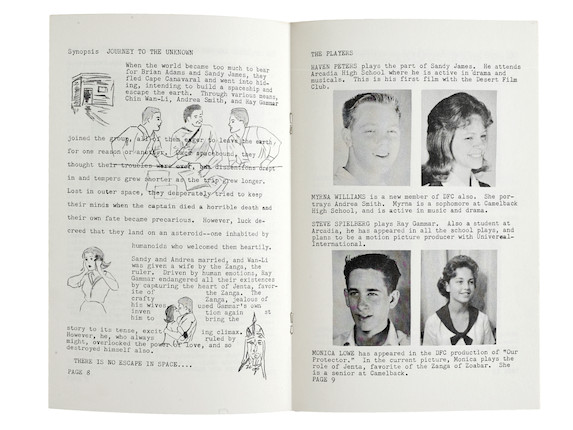 Synopsis JOURNEY TO THE UNKNOWN
When the world became too much to bear
for Brian Adams and Sandy James, they
fled Cape Canavaral and went into hid-
ing, intending to build a spaceship and
escape the earth. Through various means,
Chin Wan-Li, Andrea Smith, and Ray Gammar
joined the group, all of them eager to leave the earth
for one reason or another. Once spacebound, they
thought their troubles were over, but dissentions crept
in and tempers grew shorter as the trip grew longer.
Lost in outer space, they desperately tried to keep
their minds when the captain died a horrible death and
their own fate became precarious. However, luck de-
creed that they land on an asteroid--one inhabited by
humanoids who welcomed them heartily.
Sandy and Andrea married, and Wan-Li
was given a wife by the Zanga, the
ruler. Driven by human emotions, Ray
Gammar endangered all their existences
by capturing the heart of Jenta, favor-
ite of the Zanga. The
crafty Zanga, jealous of
his wives used Gammar's own
inven tion again st
him to bring the
story to its tense, excit ing climax.
However, he, who always ruled by
might, overlooked the power of love, and so
destroyed himself also.
THERE IS NO ESCAPE IN SPACE....
PAGE 8
THE PLAYERS
HAVEN PETERS plays the part of Sandy James. He attends
Arcadia High School where he is active in drama and
musicals. This is his first film with the Desert Film
Club.
MYRNA WILLIAMS is a new member of DFC also. She por-
trays Andrea Smith. Myrna is a sophomore at Camelback
High School, and is active in music and drama.
STEVE SPIELBERG plays Ray Gammar. Also a student at
Arcadia, he has appeared in all the school plays, and
plans to be a motion picture producer with Universal-
International.
MONICA LOWE has appeared in the DFC production of "Our
Protector." In the current picture, Monica plays the
role of Jenta, favorite of the Zanga of Zoabar. She
is a senior at Camelback.
PAGE 9